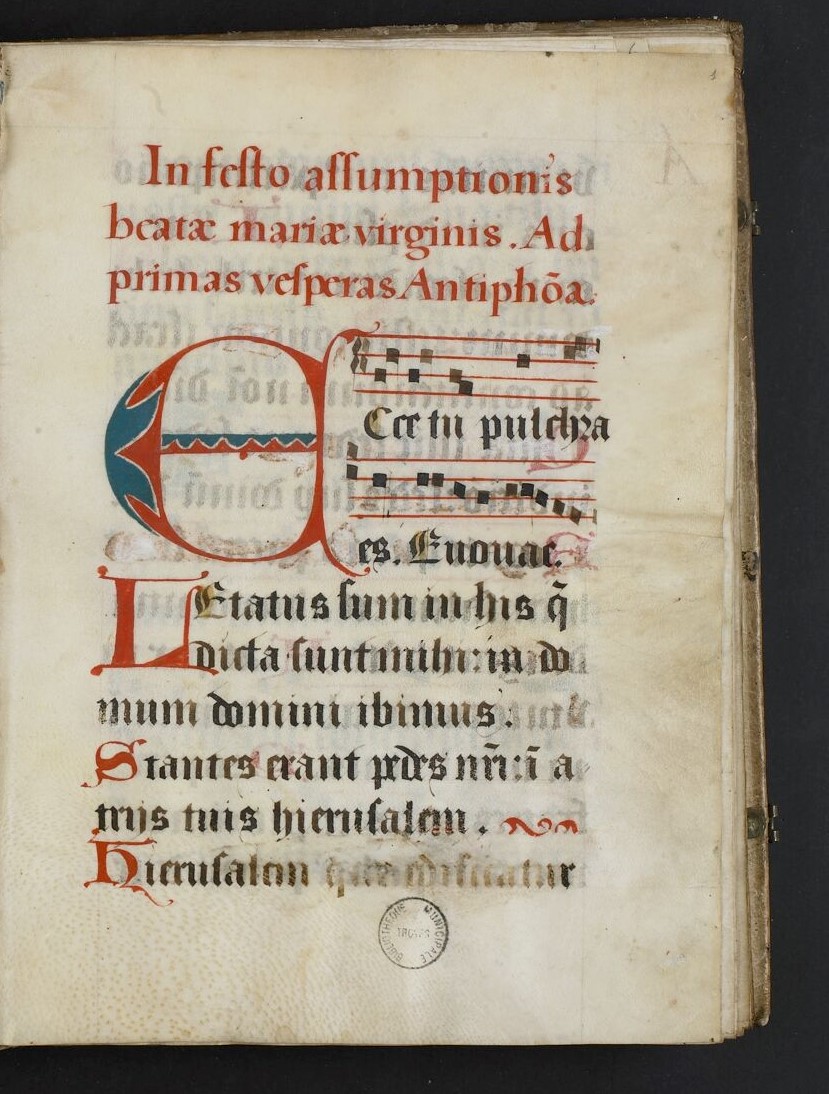 In festo assumptionis
beatæ mariæ virginis. Ad
primas vesperas Antiphõa.
ECce tu pulchra
es. Euouae.
LEtatus sum in his q̃
dicta sunt mihi: in do
mum domini ibimus.
Stantes erant pedes nr̃i: ĩ a
trijs tuis hierusalem.
Hierusalem quæ edificatur
BIBLIOTHEQUE MUNICIPALE